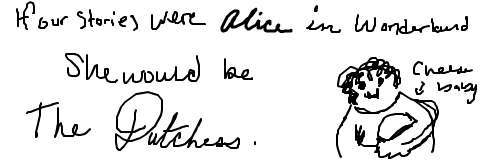 If our Stories were Alice in Wonderland
She would be
The Dutchess.
Cheese
baby